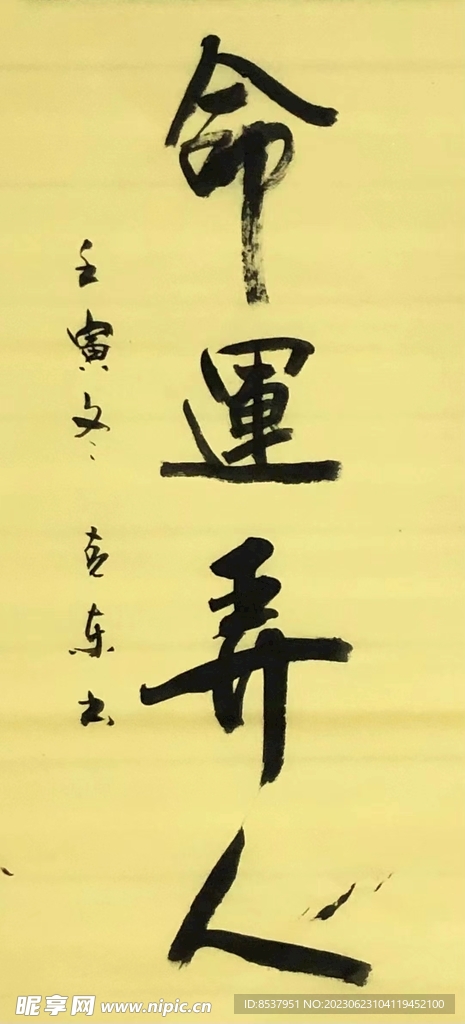 命運弄人
壬寅冬 克东书
昵享网 www.nipic.cn
ID:8537951 NO:20230623104119452100